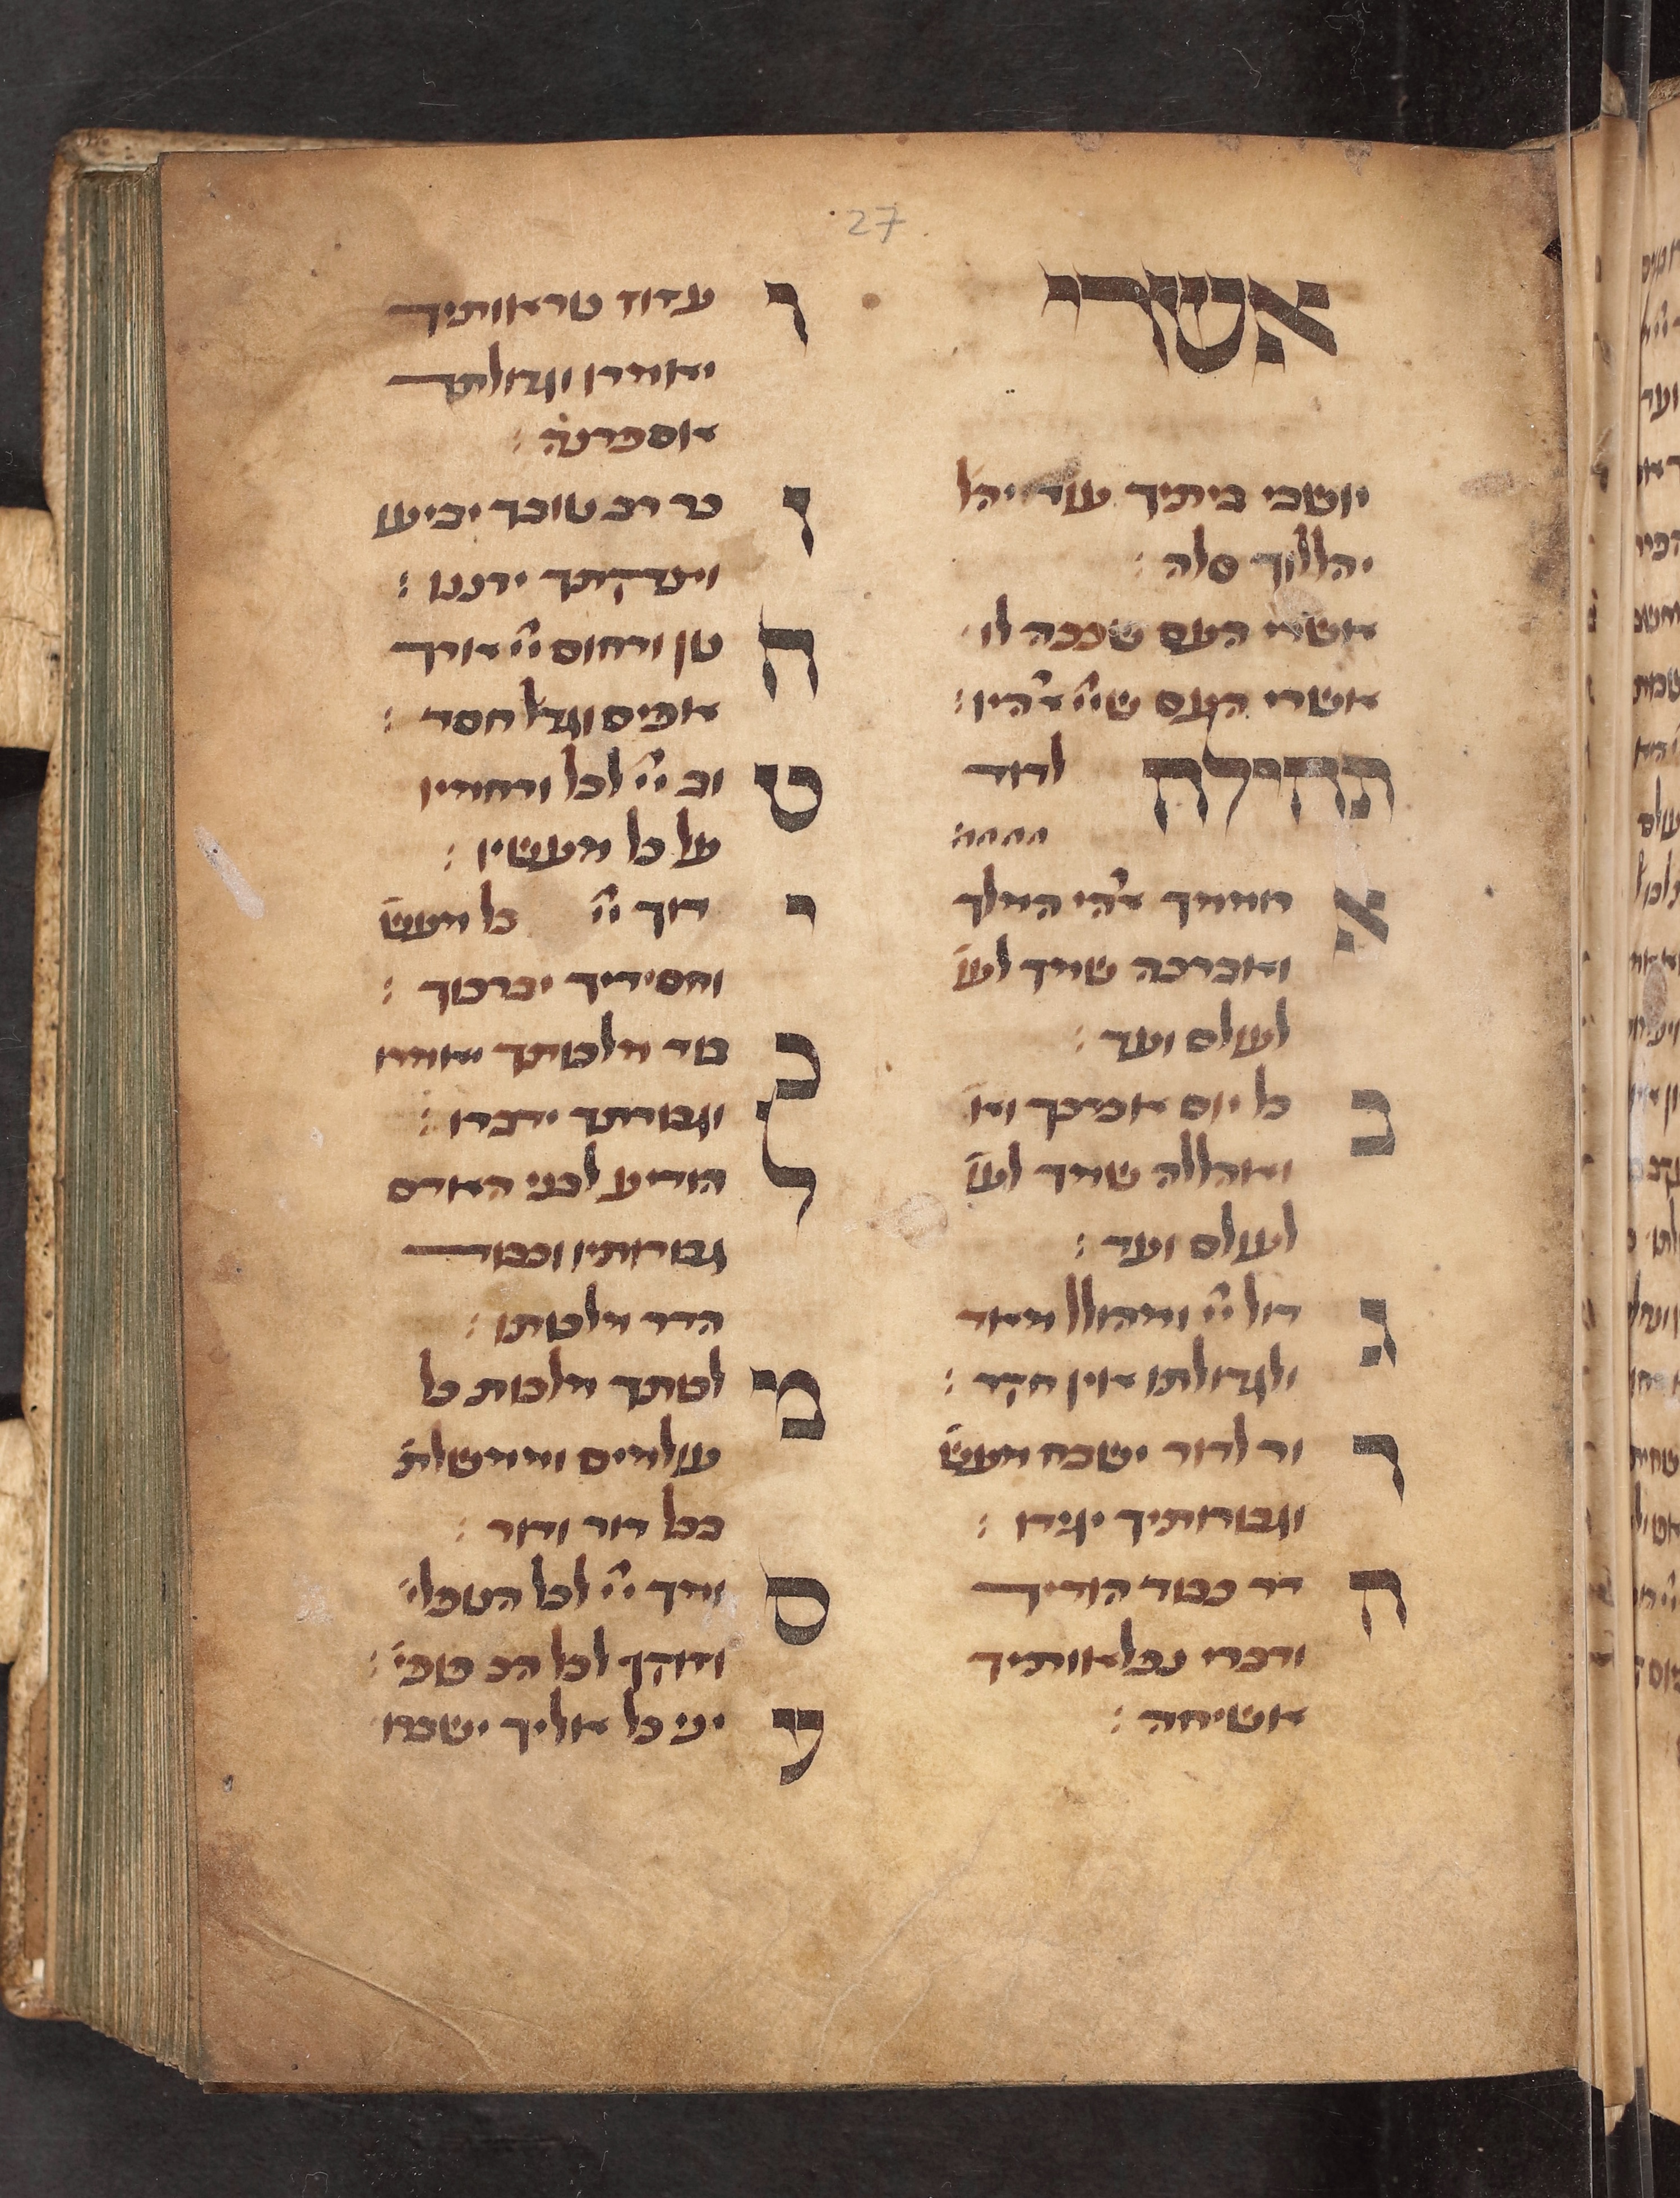 27
אשרי
יושבי ביתיך עוד יהל
יהללוך סלה :
אשרי העם שככה לו
אשרי העם שיי אלהיו :
תהילה לדוד
א רוממך אלהי המלך
ואברכה שמך לעו
לעולם ועד :
ב כל יום אברכך וא
ואהללה שמך לעו
לעולם ועד :
ג דול יי ומהולל מאד
ולגדולתו אין חקר :
ד ור לדור ישבח מעש
וגבורותיך יגידו :
ה דר כבוד הודיך
ודברי נפלאותיך
אשיחה :
ו עזוז נוראותיך
יאמרו וגדולתך
אספרנה :
ז כר רב טובך יביעו
וצדקתך ירננו :
ח נון ורחום יי ארך
אפים וגדל חסד :
ט וב יי לכל ורחמיו
על כל מעשיו :
י דוך יי כל מעש
וחסידיך יברכוך :
כ בוד מלכותך יאמרו
וגבורתך ידברו :
ל הודיע לבני האדם
גבורותיו וכבוד
הדר מלכותו :
מ לכותך מלכות כל
עולמים וממשלת
בכל דור ודור :
ס ומך יי לכל הנופלי
וזוקף לכל הכפופי :
ע יני כל אליך ישברו